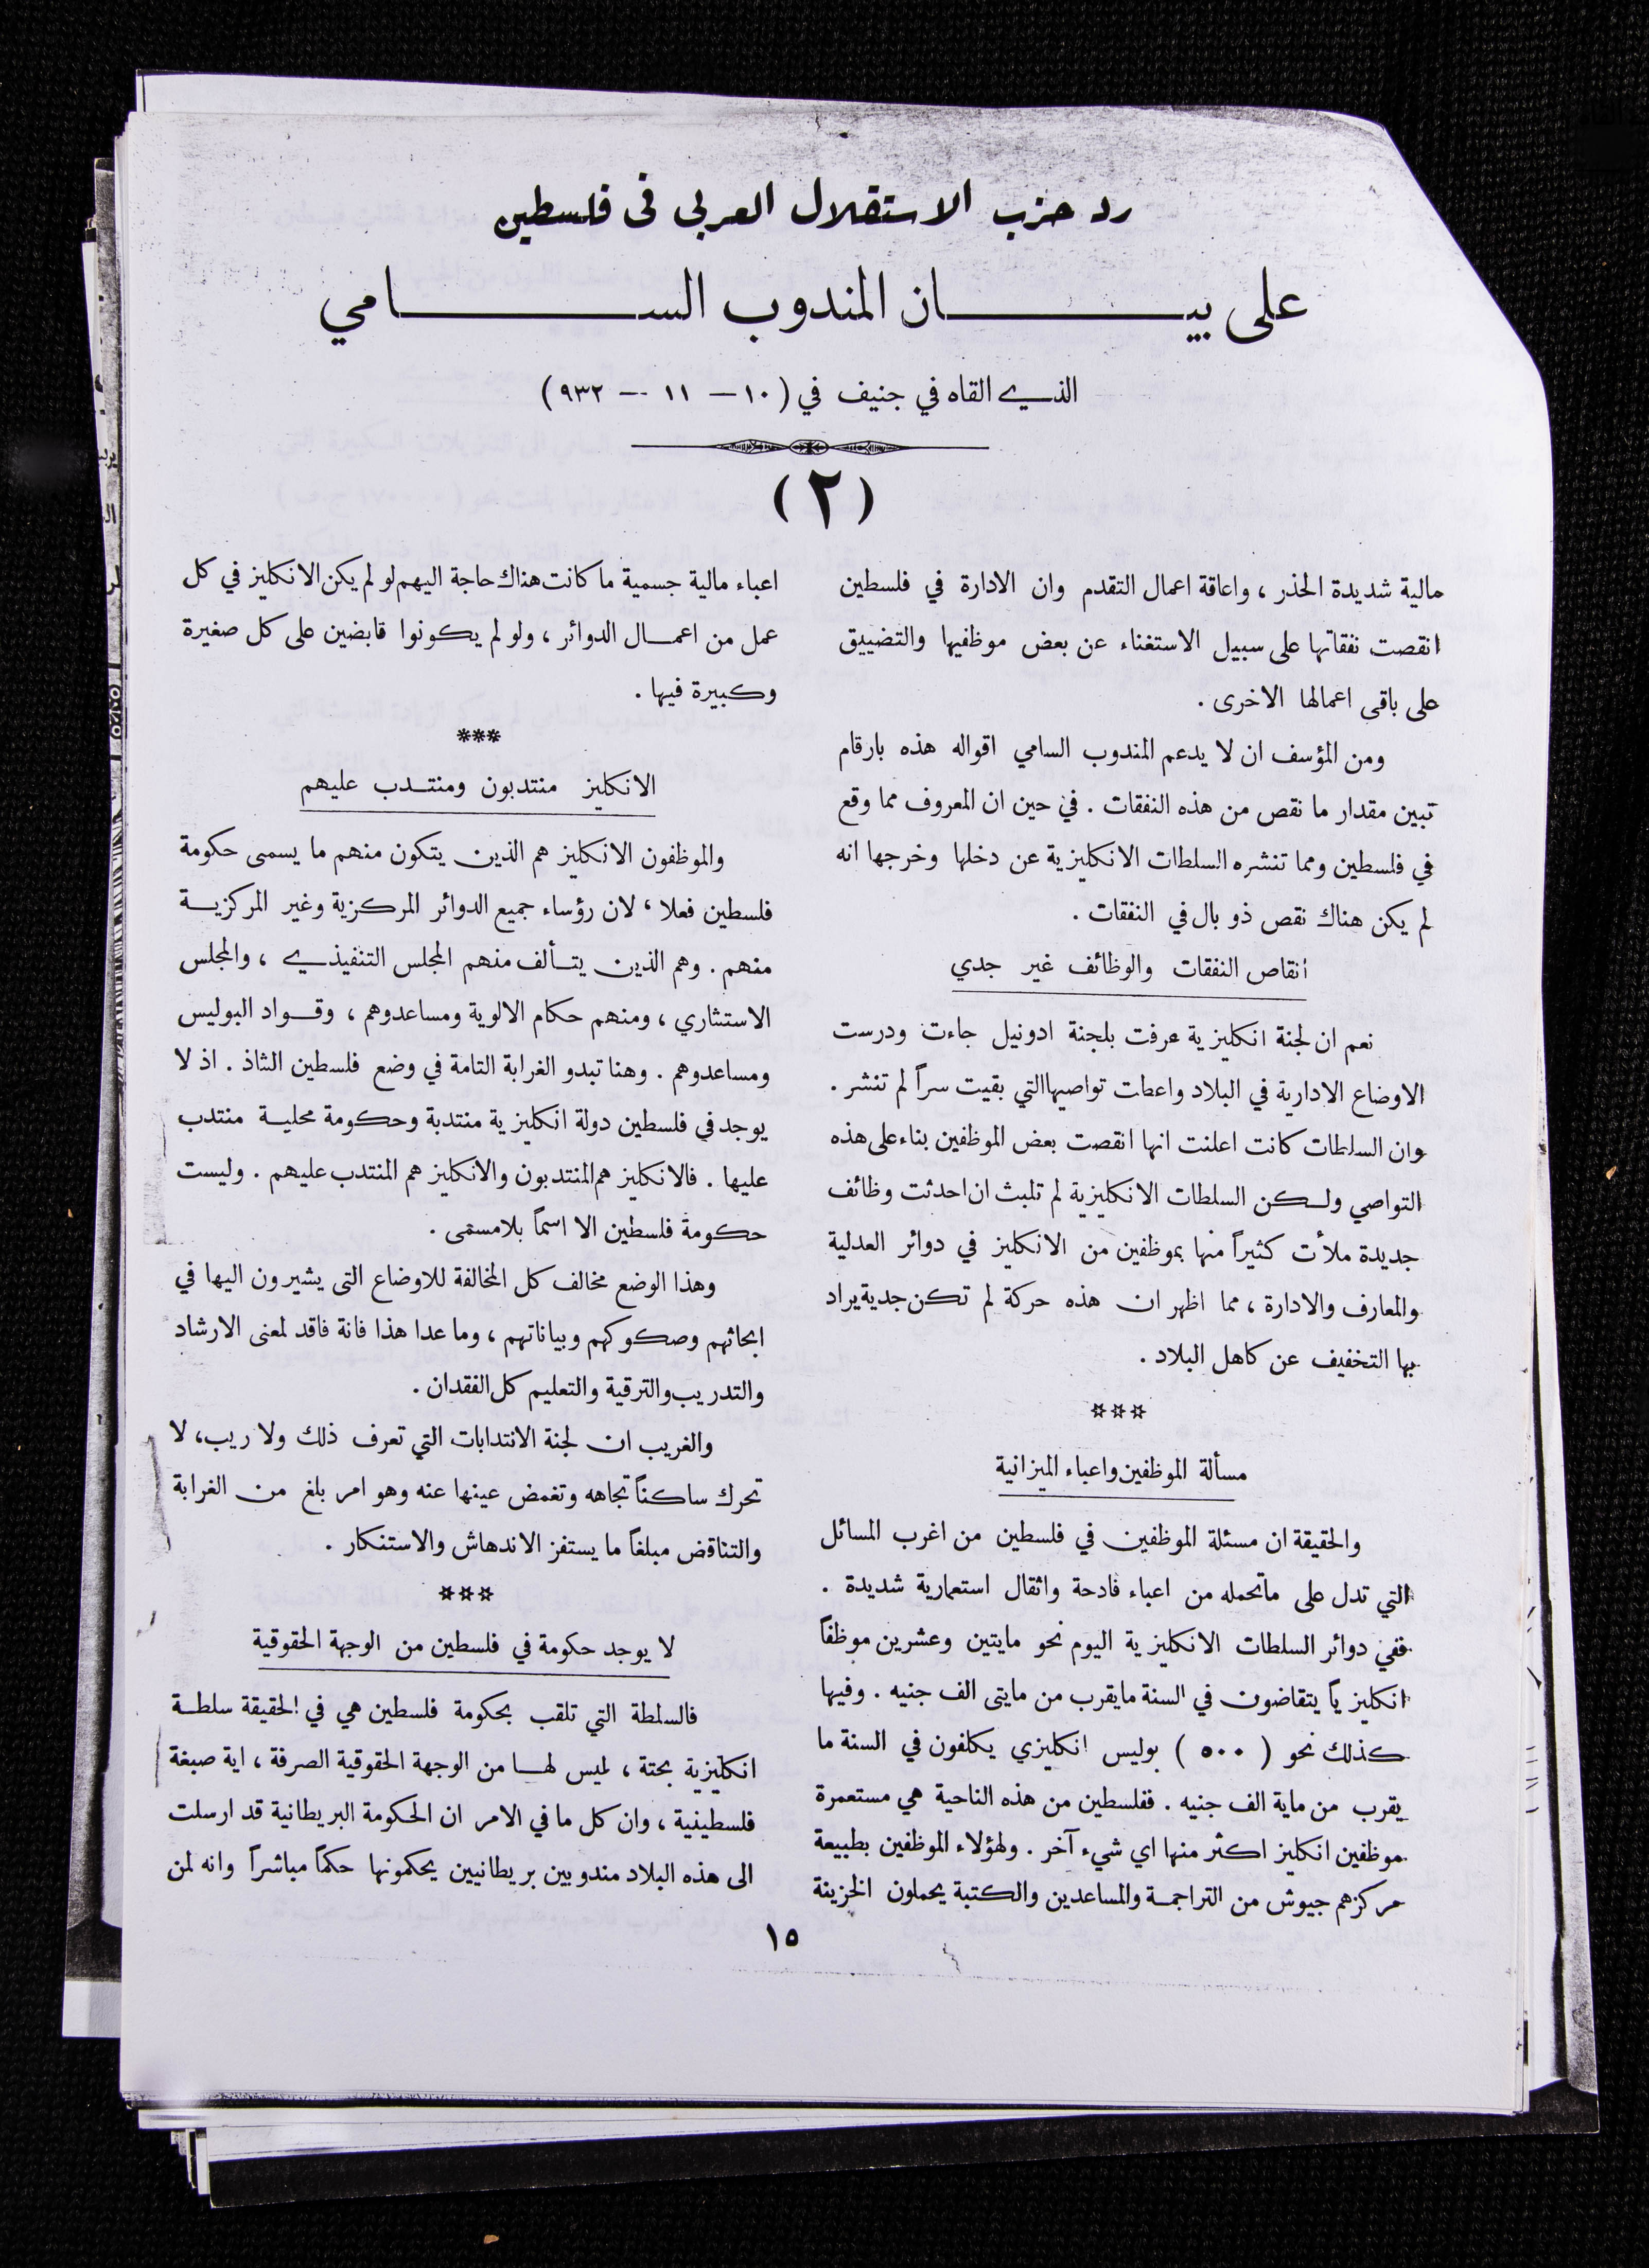 رد حزب الاستقلال العربي في فلسطين
على بيان المندوب السامي
الذي القاه في جنيف في (١٠ — ١١ — ٩٣٢)
(٢)
مالية شديدة الحذر ، واعاقة اعمال التقدم وان الادارة في فلسطين
انقصت نفقاتها على سبيل الاستغناء عن بعض موظفيها والتضييق
على باقي اعمالها الاخرى .
ومن المؤسف ان لا يدعم المندوب السامي اقواله هذه بارقام
تبين مقدار ما نقص من هذه النفقات . في حين ان المعروف مما وقع
في فلسطين ومما تنشره السلطات الانكليزية عن دخلها وخرجها انه
لم يكن هناك نقص ذو بال في النفقات .
انقاص النفقات والوظائف غير جدي
نعم ان لجنة انكليزية عرفت بلجنة ادونيل جاءت ودرست
الاوضاع الادارية في البلاد واعطت تواصيها التي بقيت سراً لم تنشر .
وان السلطات كانت اعلنت انها انقصت بعض الموظفين بناء على هذه
التواصي ولكن السلطات الانكليزية لم تلبث ان احدثت وظائف
جديدة ملأت كثيراً منها بموظفين من الانكليز في دوائر العدلية
والمعارف والادارة ، مما اظهر ان هذه حركة لم تكن جدية يراد
بها التخفيف عن كاهل البلاد .
***
مسألة الموظفين واعباء الميزانية
والحقيقة ان مسئلة الموظفين في فلسطين من اغرب المسائل
التي تدل على ماتحمله من اعباء فادحة واثقال استعمارية شديدة .
ففي دوائر السلطات الانكليزية اليوم نحو مايتين وعشرين موظفاً
انكليزياً يتقاضون في السنة مايقرب من مايتى الف جنيه . وفيها
كذلك نحو ( ٥٠٠ ) بوليس انكليزي يكلفون في السنة ما
يقرب من ماية الف جنيه . ففلسطين من هذه الناحية هي مستعمرة
موظفين انكليز اكثر منها اي شيء آخر . ولهؤلاء الموظفين بطبيعة
مركزهم جيوش من التراجمة والمساعدين والكتبة يحملون الخزينة
اعباء مالية جسمية ما كانت هناك حاجة اليهم لو لم يكن الانكليز في كل
عمل من اعمال الدوائر ، ولو لم يكونوا قابضين على كل صغيرة
وكبيرة فيها .
***
الانكليز منتدبون ومنتدب عليهم
والموظفون الانكليز هم الذين يتكون منهم ما يسمى حكومة
فلسطين فعلا ، لان رؤساء جميع الدوائر المركزية وغير المركزية
منهم . وهم الذين يتألف منهم المجلس التنفيذي ، والمجلس
الاستشاري ، ومنهم حكام الالوية ومساعدوهم ، وقواد البوليس
ومساعدوهم . وهنا تبدو الغرابة التامة في وضع فلسطين الشاذ . اذ لا
يوجد في فلسطين دولة انكليزية منتدبة وحكومة محلية منتدب
عليها . فالانكليز هم المنتدبون والانكليز هم المنتدب عليهم . وليست
حكومة فلسطين الا اسماً بلا مسمى .
وهذا الوضع مخالف كل المخالفة للاوضاع التى يشيرون اليها في
ابحاثهم وصكوكهم وبياناتهم ، وما عدا هذا فانة فاقد لمعنى الارشاد
والتدريب والترقية والتعليم كل الفقدان .
والغريب ان لجنة الانتدابات التي تعرف ذلك ولا ريب ، لا
تحرك ساكناً تجاهه وتغمض عينها عنه وهو امر بلغ من الغرابة
والتناقض مبلغاً ما يستفز الاندهاش والاستنكار .
***
لا يوجد حكومة في فلسطين من الوجهة الحقوقية
فالسلطة التي تلقب بحكومة فلسطين هي في الحقيقة سلطة
انكليزية بحتة ، ليس لها من الوجهة الحقوقية الصرفة ، اية صبغة
فلسطينية ، وان كل ما في الامر ان الحكومة البريطانية قد ارسلت
الى هذه البلاد مندوبين بريطانيين يحكمونها حكماً مباشراً وانه لمن
١٥